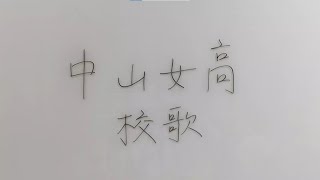 中山女高
校歌